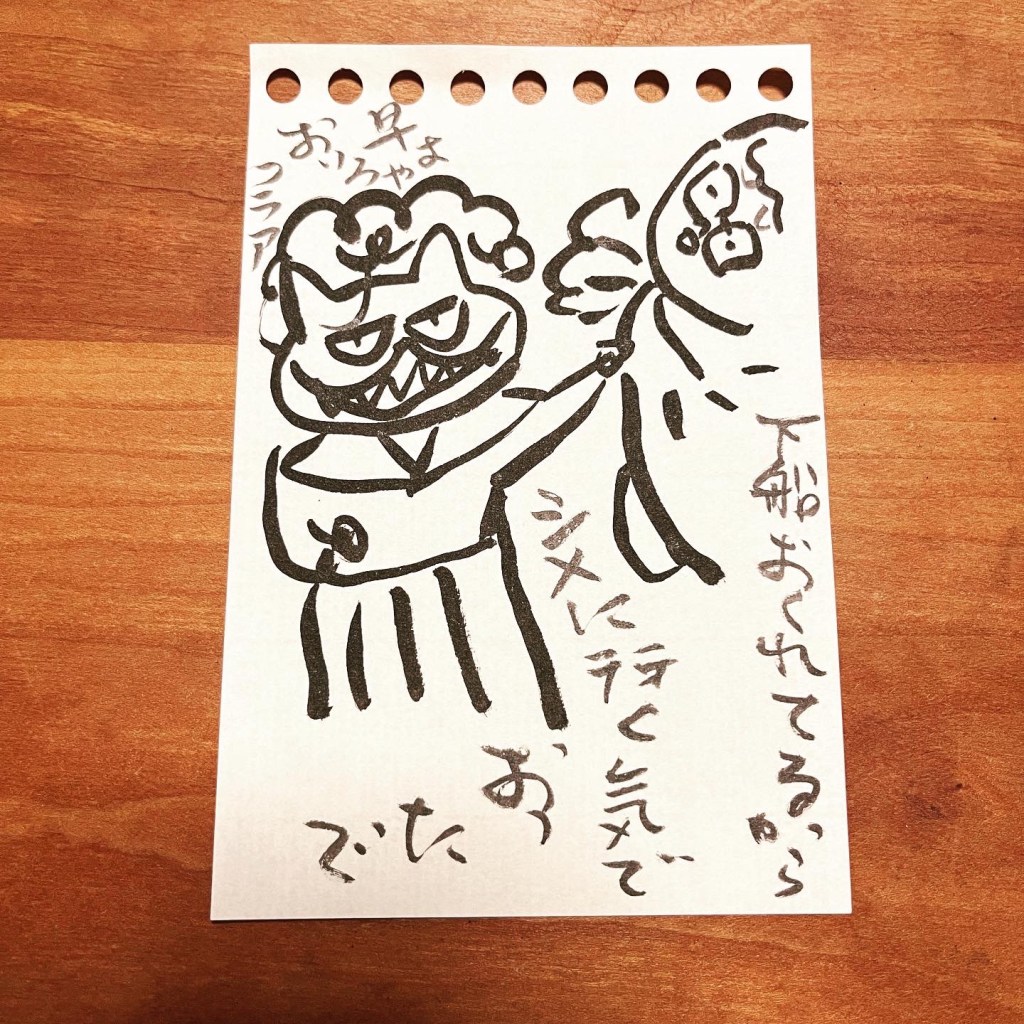 早よ
おりろや
コラア
下船おくれてるから
シメに行く気で
おっ
た
で